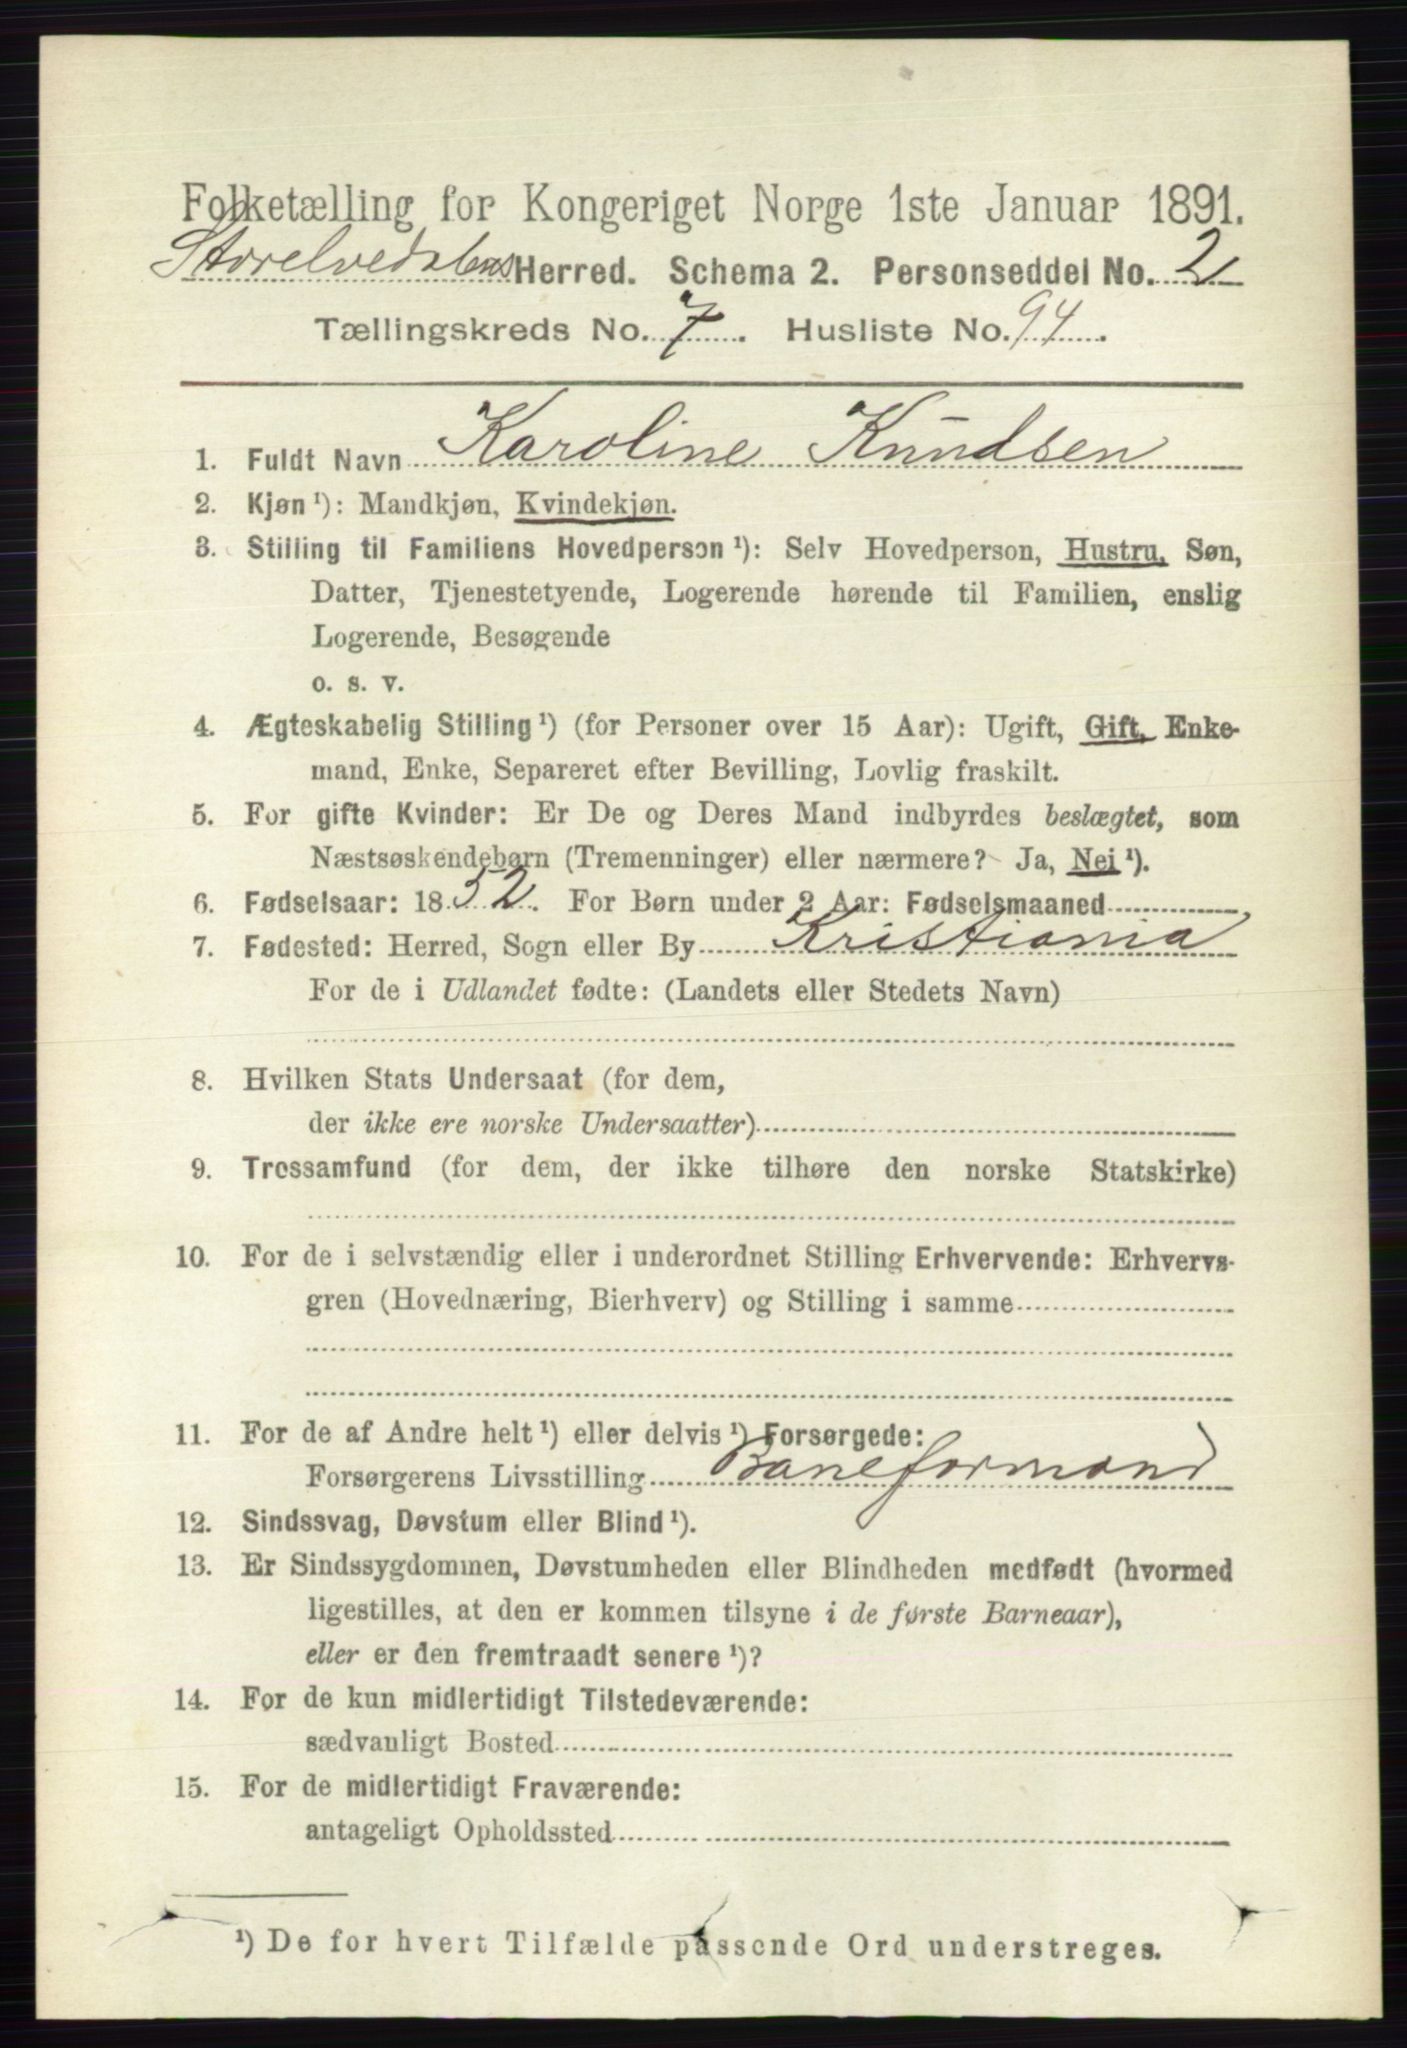 Folketælling for Kongeriget Norge 1ste Januar 1891.
Storelvedalens Herred. Schema 2. Personseddel No. 2
Tællingskreds No. 7. Husliste No. 94.
1. Fuldt Navn Karoline Knudsen
2. Kjøn ¹): Mandkjøn, Kvindekjøn.
3. Stilling til Familiens Hovedperson ¹): Selv Hovedperson, Hustru, Søn,
Datter, Tjenestetyende, Logerende hørende til Familien, enslig
Logerende, Besøgende
o. s. v.
4. Ægteskabelig Stilling ¹) (for Personer over 15 Aar): Ugift, Gift, Enke-
mand, Enke, Separeret efter Bevilling, Lovlig fraskilt.
5. For gifte Kvinder: Er De og Deres Mand indbyrdes beslægtet, som
Næstsøskendebørn (Tremenninger) eller nærmere? Ja, Nei ¹).
6. Fødselsaar: 1852. For Børn under 2 Aar: Fødselsmaaned
7. Fødested: Herred, Sogn eller By Kristiania
For de i Udlandet fødte: (Landets eller Stedets Navn)
8. Hvilken Stats Undersaat (for dem,
der ikke ere norske Undersaatter)
9. Trossamfund (for dem, der ikke tilhøre den norske Statskirke)
10. For de i selvstændig eller i underordnet Stilling Erhvervende: Erhvervs-
gren (Hovednæring, Bierhverv) og Stilling i samme
11. For de af Andre helt ¹) eller delvis ¹) Forsørgede:
Forsørgerens Livsstilling Baneformand
12. Sindssvag, Døvstum eller Blind ¹).
13. Er Sindssygdommen, Døvstumheden eller Blindheden medfødt (hvormed
ligestilles, at den er kommen tilsyne i de første Barneaar),
eller er den fremtraadt senere ¹)?
14. For de kun midlertidigt Tilstedeværende:
sædvanligt Bosted
15. For de midlertidigt Fraværende:
antageligt Opholdssted
¹) De for hvert Tilfælde passende Ord understreges.